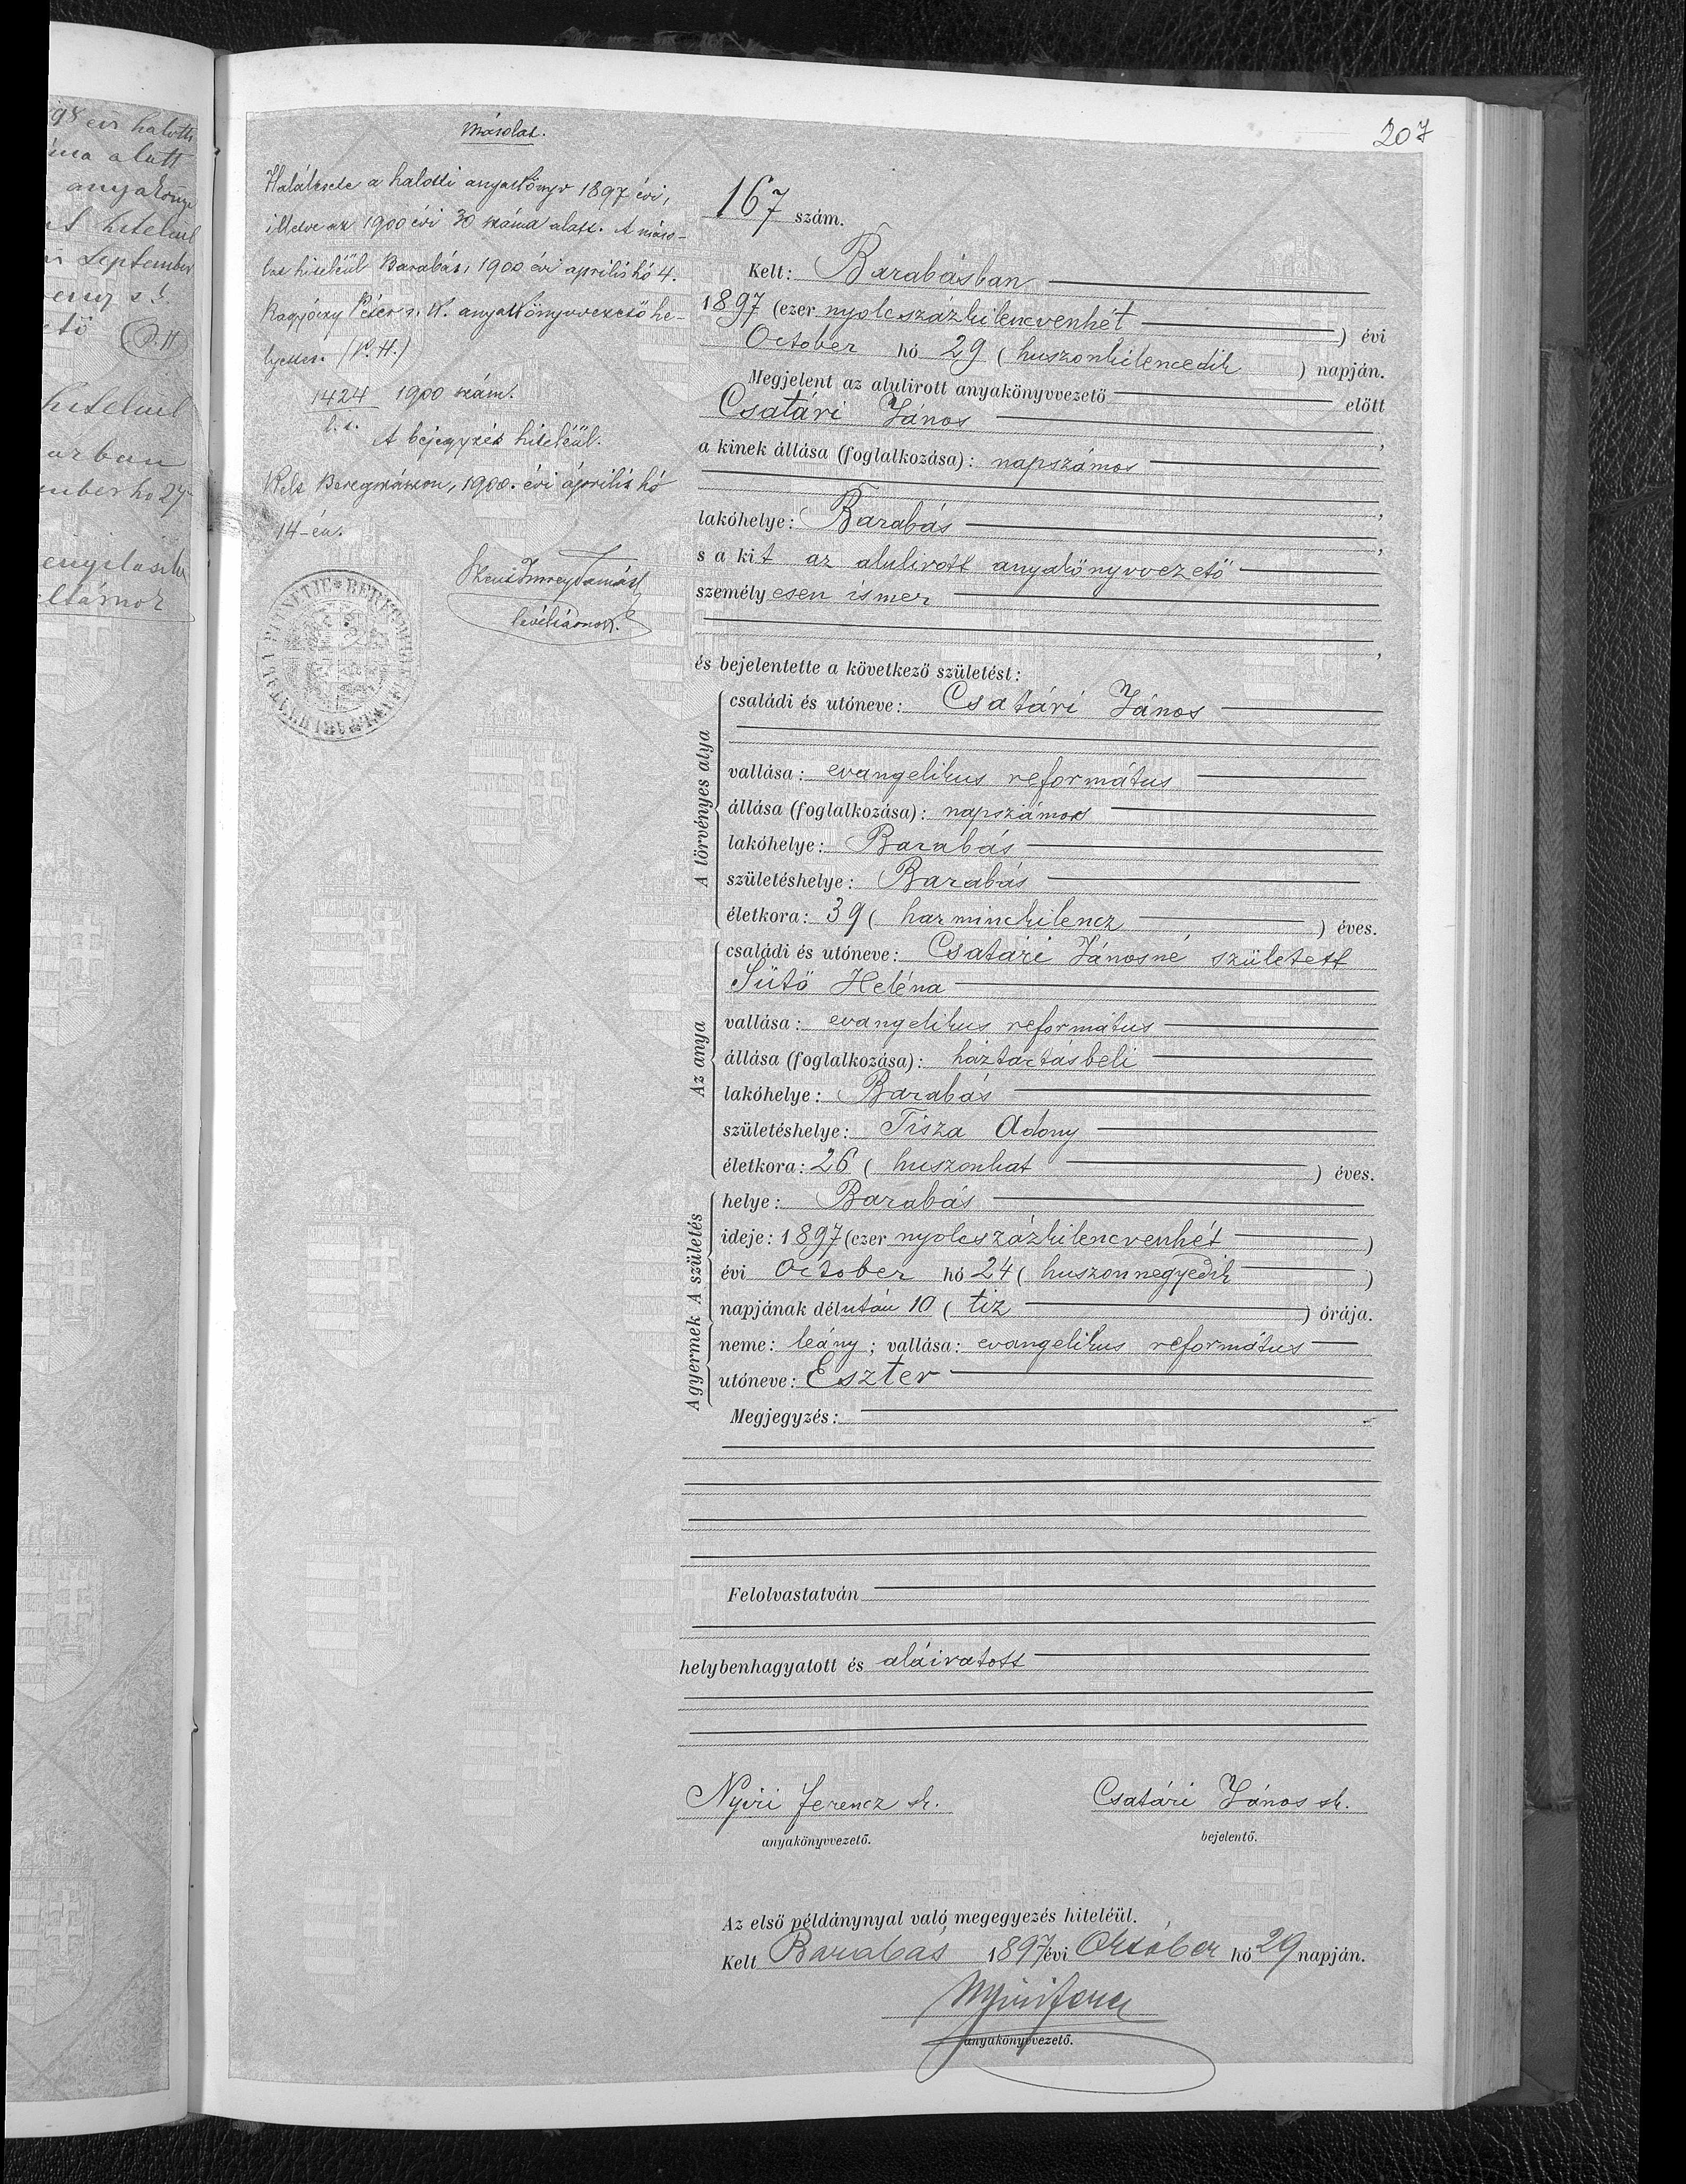 98 évi halotti
alatt
anyakönyv
hitelűl
September
P. H.
hitelűl
ber hó 27
207
Másolat.
Halálesete a halotti anyakönyv 1897 évi,
illetve az 1900 évi 30 száma alatt. A máso-
lat hiteléül Barabás, 1900 évi április hó 4.
Péter s. k. anyakönyvvezető he-
lyettes. (P. H.)
1424 1900 szám.
A bejegyzés hiteléül.
Kelt Beregszászon, 1900. évi április hó
14-én.
Tamás
levéltárnok.
167 szám.
Kelt: Barabásban
1897 (ezer nyolcszázkilencvenhét) évi
October hó 29 (huszonkilencedik) napján.
Megjelent az alulirott anyakönyvvezető előtt
Csatári János,
a kinek állása (foglalkozása): napszámos
lakóhelye: Barabás,
s a kit az alulirott anyakönyvvezető
személyesen ismer
és bejelentette a következő születést:
A törvényes atya
családi és utóneve: Csatári János
vallása: evangelikus református
állása (foglalkozása): napszámos
lakóhelye: Barabás
születéshelye: Barabás
életkora: 39 (harminckilencz) éves.
Az anya
családi és utóneve: Csatári Jánosné született
Sütő Heléna
vallása: evangelikus református
állása (foglalkozása): háztartásbeli
lakóhelye: Barabás
születéshelye: Tisza Adony
életkora: 26 (huszonhat) éves.
A születés
helye: Barabás
ideje: 1897 (ezer nyolcszázkilencvenhét)
évi October hó 24 (huszonnegyedik)
napjának délután 10 (tiz) órája.
A gyermek
neme: leány; vallása: evangelikus református
utóneve: Eszter
Megjegyzés:
Felolvastatván
helybenhagyatott és aláiratott
Nyiri Ferencz sk. Csatári János sk.
anyakönyvvezető. bejelentő.
Az első példánynyal való megegyezés hiteléül.
Kelt Barabás 1897 évi Október hó 29 napján.
Nyiri Ferencz
anyakönyvvezető.